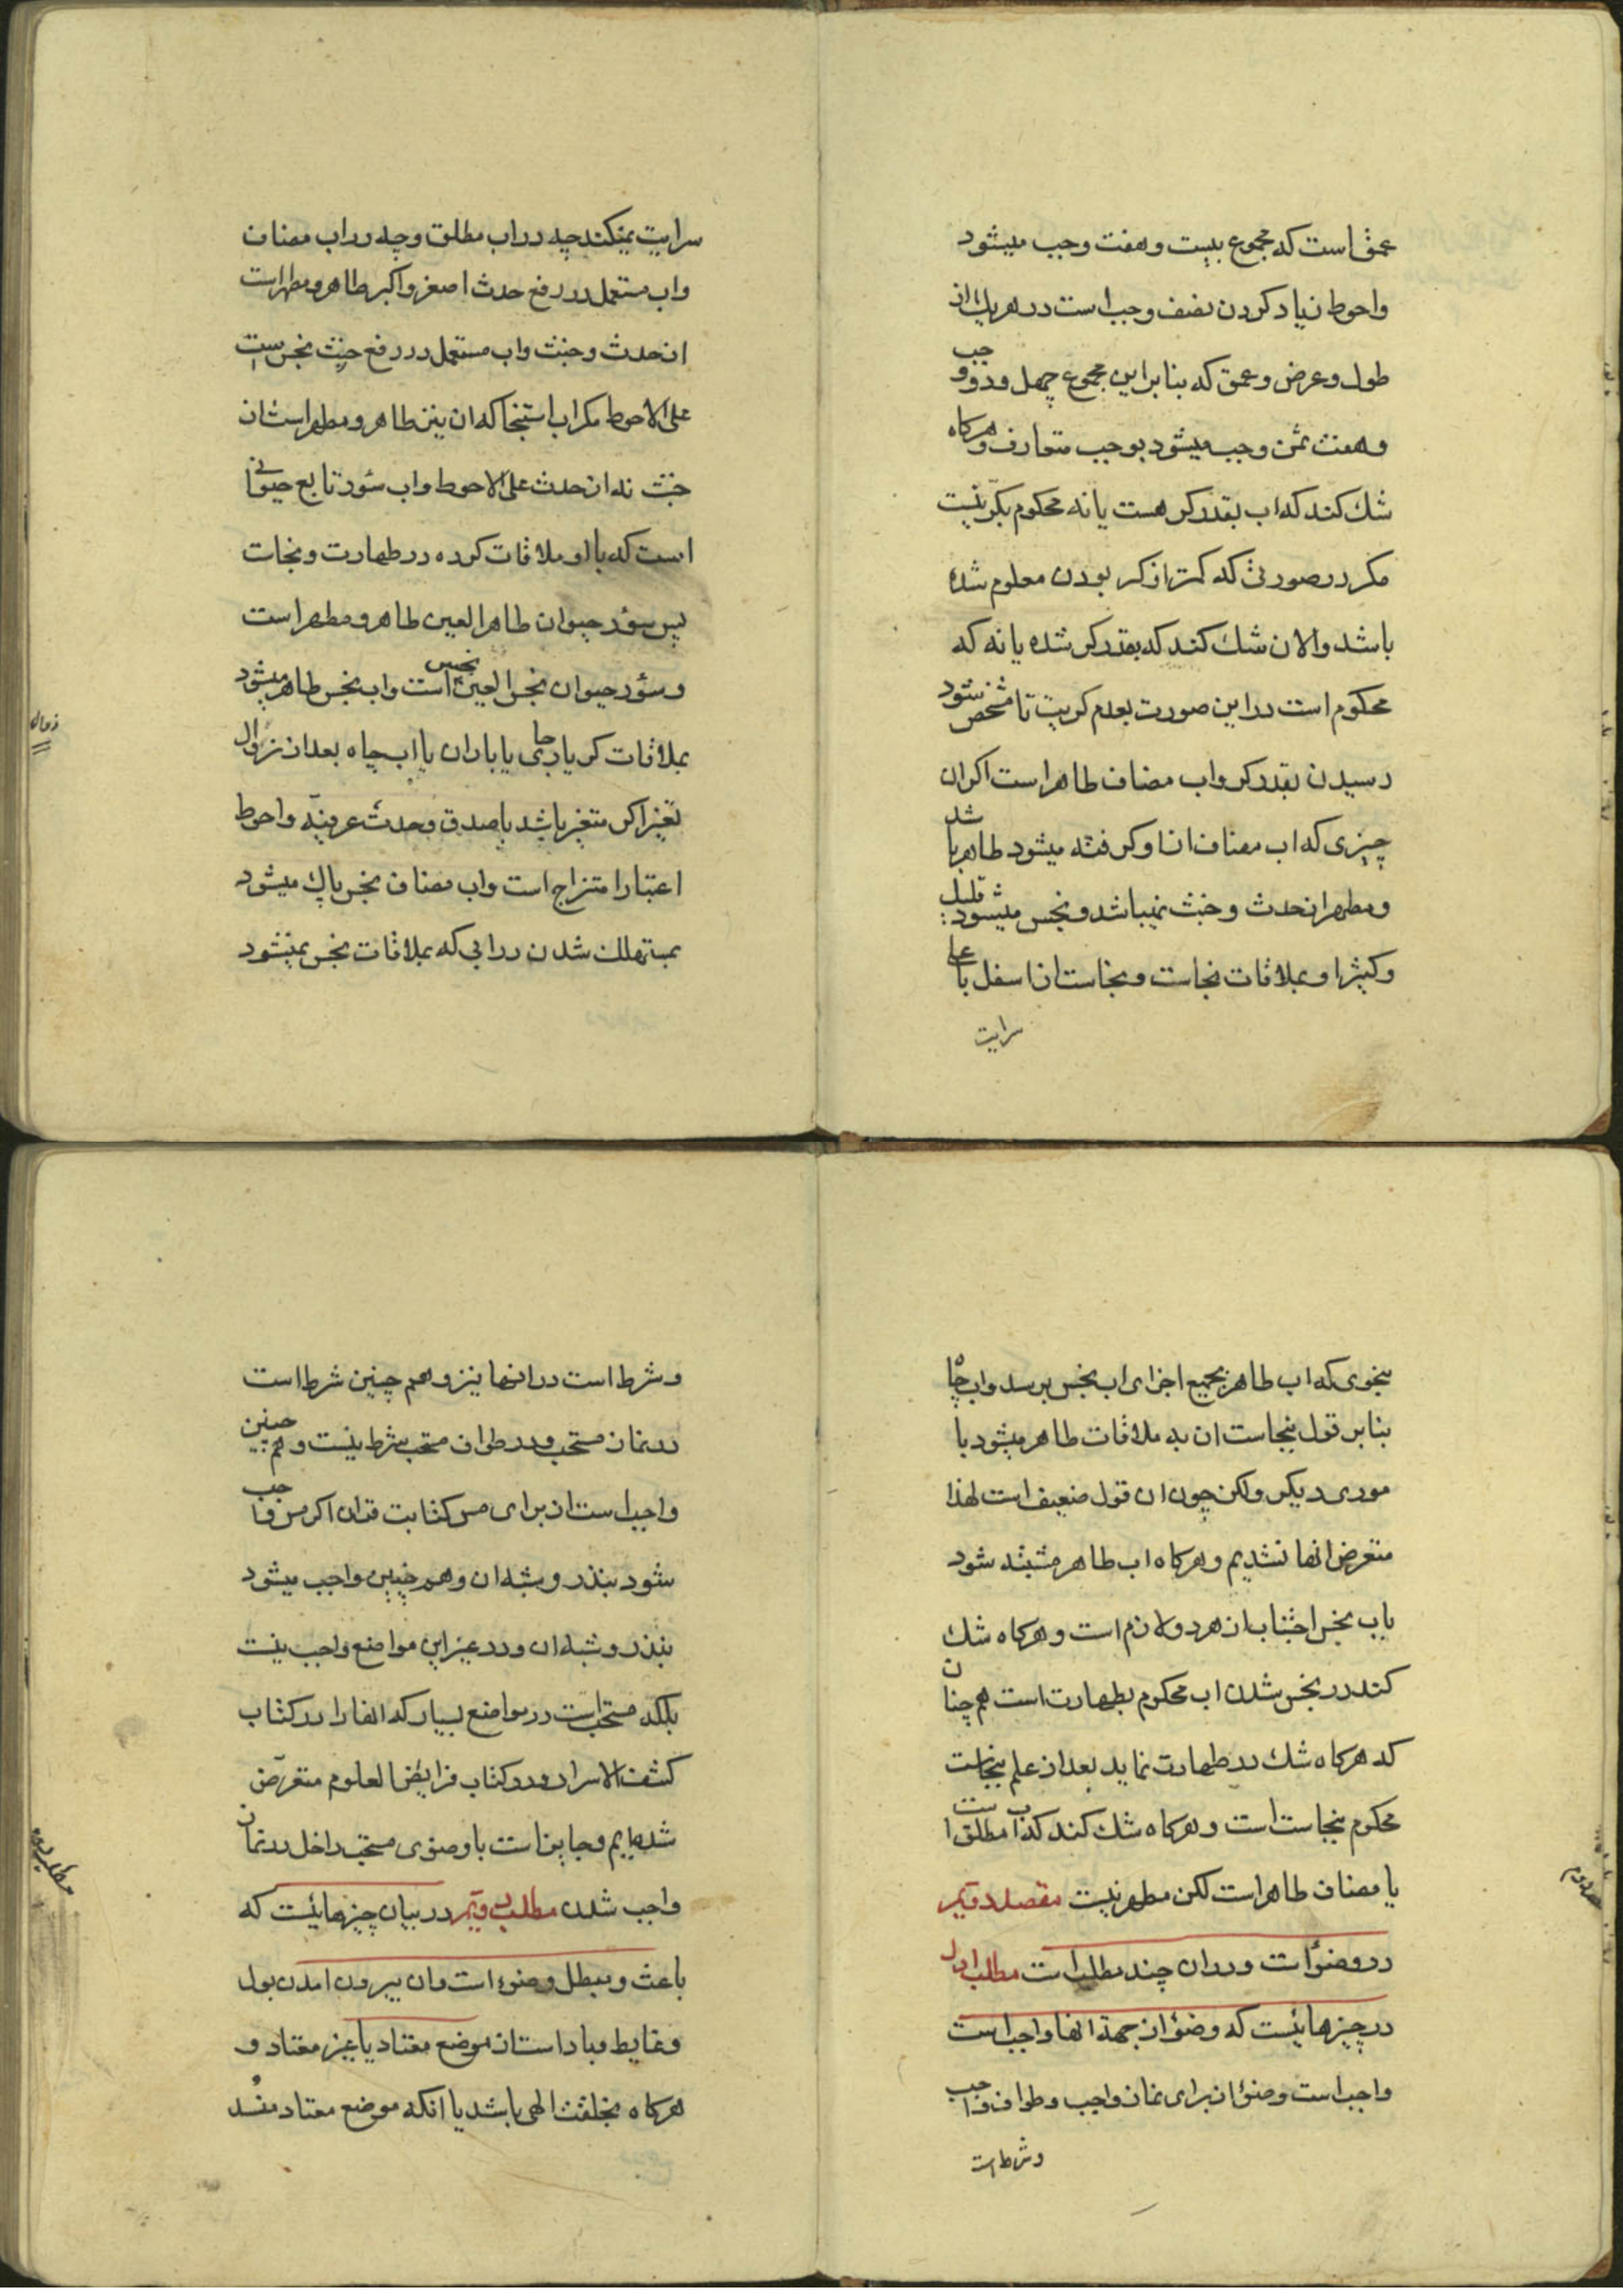 عمق است که مجموع بیست و هفت وجب میشود
و احوط زیاد کردن نصف وجب است در هریك از
طول و عرض و عمق که بنابراین مجموع چهل و دو وجب
و هفت ثمن وجب میشود بوجب متعارف و هرکاه
شك کند که اب بقدر کر هست یا نه محکوم بکریّت نیست
مکر در صورتی که کمتر از کر بودن معلوم شده
باشد و الان شك کند که بقدر کر شده یا نه که
محکوم است در این صورت بعدم کریت تا مشخص شود
رسیدن بقدر کر و اب مضاف طاهر است اکر ان
چیزی که اب مضاف از او کرفته میشود طاهر باشد
و مطهر از حدث و خبث نمیباشد و نجس میشود قلیل
و کثیر او بملاقات نجاست و نجاست از اسفل باعلی
سرایت
سرایت نمیکند چه در اب مطلق و چه در اب مضاف
و اب مستعمل در رفع حدث اصغر و اکبر طاهر و مطهر است
از حدث و خبث و اب مستعمل در رفع خبث نجس است
علی الاحوط مکر اب استنجا که ان نیز طاهر و مطهر است از
خبث نه از حدث علی الاحوط و اب سؤر تابع حیوانی
است که با او ملاقات کرده در طهارت و نجات
پس سؤر حیوان طاهر العین طاهر و مطهر است
و سؤر حیوان نجس العین نجس است و اب نجس طاهر میشود
بملاقات کر یا جاری یا باران یا اب چاه بعد از زوال
زوال
تغیر اکر متغیر باشد با صدق وحدت عرفیّه و احوط
اعتبار امتزاج است و اب مضاف نجس پاك میشود
بمستهلك شدن در ابی که بملاقات نجس نمیشود
بنحوی که اب طاهر بجمیع اجزای اب نجس برسد و اب چاه
بنابر قول بنجاست ان به ملاقات طاهر میشود با
موری دیکر ولکن چون ان قول ضعیف است لهذا
متعرض انها نشدیم و هرکاه اب طاهر مشتبه شود
باب نجس اجتناب از هر دو لازم است و هرکاه شك
کند در نجس شدن اب محکوم بطهارت است هم چنان
که هرکاه شك در طهارت نماید بعد از علم بنجاست
محکوم بنجاست است و هرکاه شك کند که اب مطلق است
یا مضاف طاهر است لکن مطهر نیست مقصد دویّم
در وضؤ است و در ان چند مطلب است مطلب اول
در چیزهائیست که وضؤ از جهة انها واجب است
واجب است وضؤ از برای نماز واجب و طواف واجب
و شرط است
و شرط است در انها نیز و هم چنین شرط است
در نماز مستحب و در طواف مستحب شرط نیست و هم چنین
واجب است از برای مس کتابت قران اکر مس واجب
شود بنذر و شبه ان و هم چنین واجب میشود
بنذر و شبه ان و در غیر این مواضع واجب نیست
بلکه مستحب است در مواضع بسیار که انها را در کتاب
کشف الاسرار و در کتاب فرایض العلوم متعرّض
شده ایم و جایز است با وضوی مستحب داخل در نماز
واجب شدن مطلب دویّم در بیان چیزهائیست که
باعث و مبطل وضوء است و ان بیرون امدن بول
و غایط و باد است از موضع معتاد یا غیر معتاد و
هرکاه بخلقت الهی باشد یا انکه موضع معتاد منسد